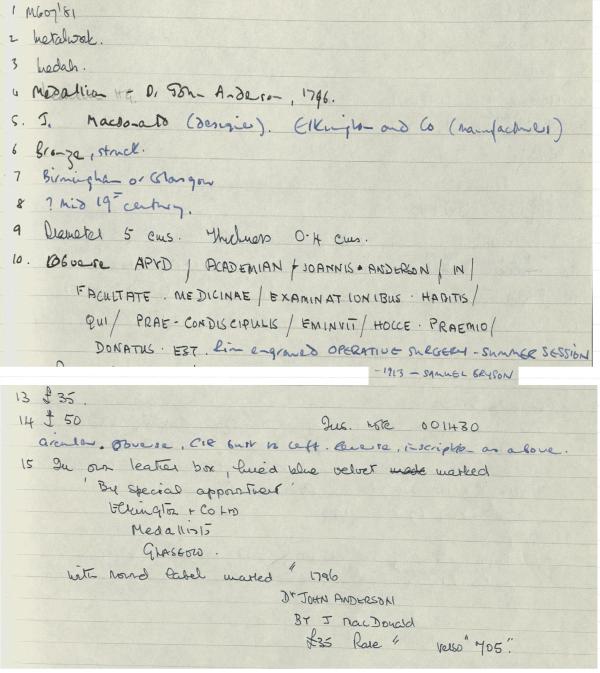 1 M607'81
2 Metalwork.
3 Medals.
4 Medallion - Dr John Anderson, 1796.
5. J. Macdonald (designer). Elkington and Co (manufacturers)
6 Bronze, struck.
7 Birmingham or Glasgow
8 ? Mid 19th century.
9 Diameter 5 cms. Thickness 0.4 cms.
10. Obverse APVD / ACADEMIAN / JOANNIS • ANDERSON / IN /
FACULTATE · MEDICINAE / EXAMINATIONIBUS · HABITIS /
QUI / PRAE-CONDISCIPULIS / EMINVIT / HOCCE · PRAEMIO /
DONATUS · EST. Rim engraved OPERATIVE SURGERY - SUMMER SESSION
- 1913 - SAMUEL BRYSON
13 £35.
14 £50 Ins. note 001430
Circular. Obverse, bust to left. Reverse, inscription as above.
15 In own leather box, lined blue velvet made marked
'By special appointment'
Elkington & Co Ltd
Medallists
GLASGOW.
with round label marked " 1796
Dr JOHN ANDERSON
BY J MacDonald
£35 Rare " verso "705".